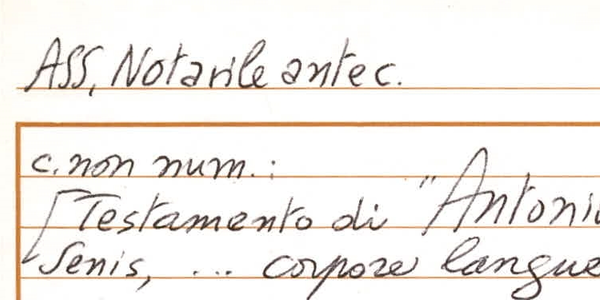 ASS, Notarile antec.
c. non num.:
[Testamento di "Antoni
Senis, ... corpore langue